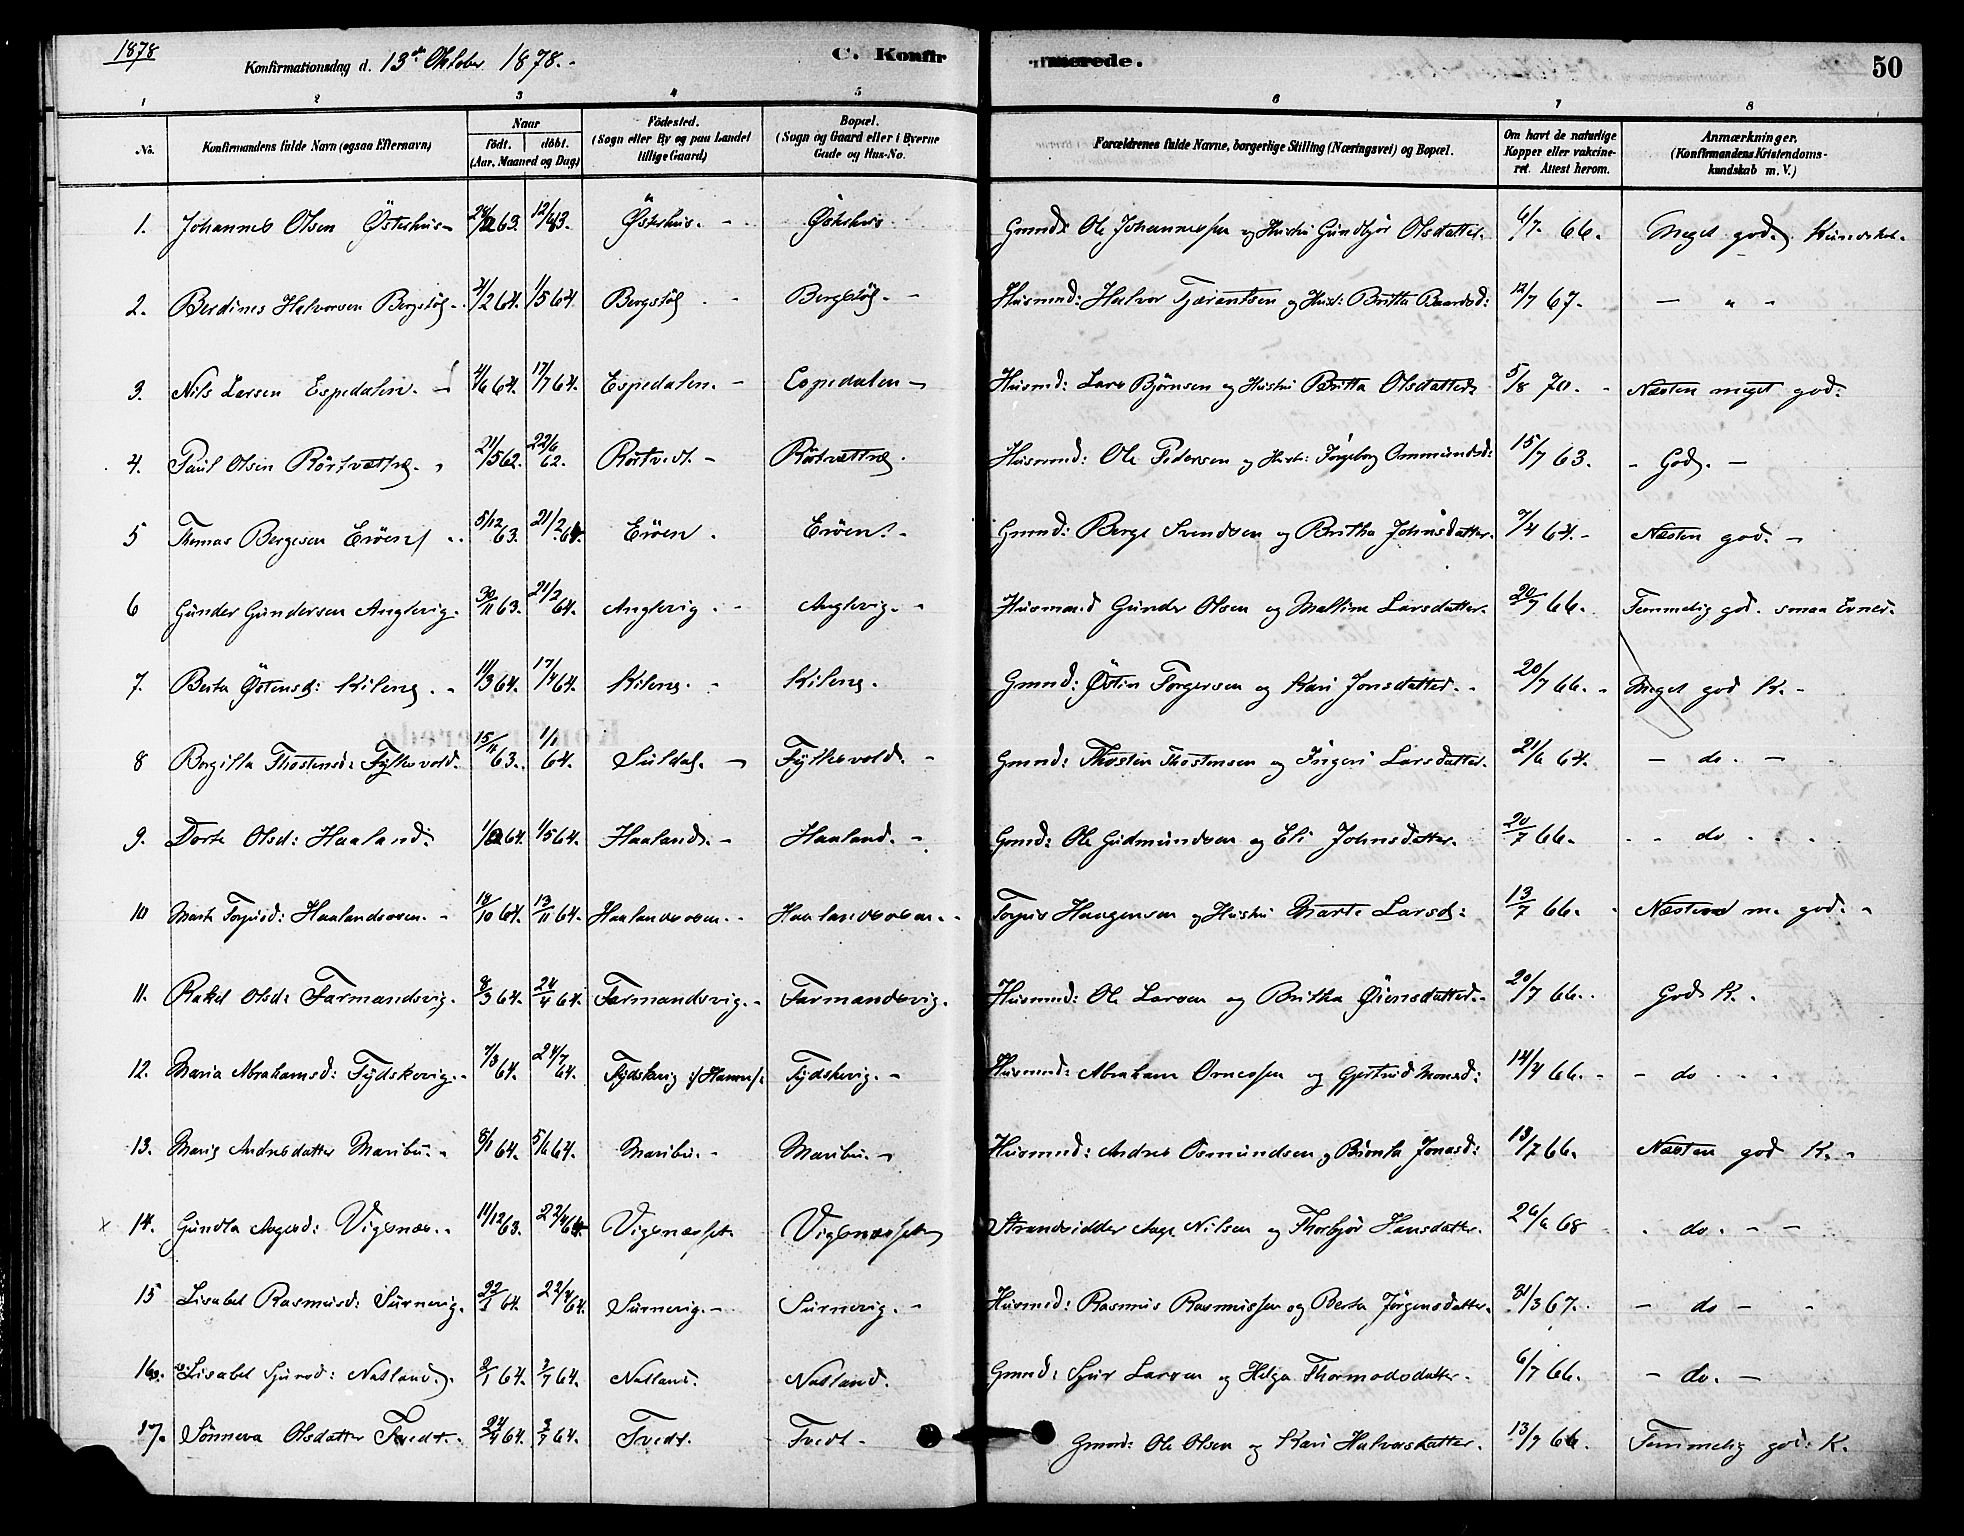 1878
Konfirmationsdag d. 13de Oktober 1878.-
C. Konfirmerede.
50
1 2 3 4 5 6 7 8
No.
Konfirmandens fulde Navn (ogsaa Efternavn)
Naar
født. døbt.
(Aar, Maaned og Dag)
Födested.
(Sogn eller By og paa Landet
tillige Gaard)
Bopæl.
(Sogn og Gaard eller i Byerne
Gade og Hus-No.
Forældrenes fulde Navne, borgerlige Stilling (Næringsvei) og Bopæl.
Om havt de naturlige
Kopper eller vakcine-
ret. Attest herom.
Anmærkninger.
(Konfirmandens Kristendoms-
kundskab m. V.)
1. Johannes Olsen Østerhus 63. Østerhus. Østerhus Gmnd: Ole Johannessen og Hustri Gundbjør Olsdatter. 6/7 66. Meget god. Kundskab.
2. Berdines Halvorsen Bergstøl 64. 1/5 64. Bergstøl Bergstøl Husmnd: Halvor og Hust: Britta Baardsd: 12/7 67. - " -
3. Nils Larsen Espedalen. 4/6 64. 17/7 64. Espedalen. Espedalen Husmd: Lars Bjørnsen og Hustri Britta Olsdatter 5/8 70. Næsten meget god:
4. Paul Olsen 21/5 62. 22/6 62. Rörtvedt Husmnd: Ole Pedersen og Hust: Ingeborg Ommundsd: 15/7 63. God.
5 Thomas Bergesen Erøen 5/12 63. 21/2 64. Erøen. Erøen. Gmnd: Berge Svendsen og Britha Johnsdatter. 7/4 64. Næsten god.
6 Gunder Gundersen Anglevig. 30/11 63. 21/2 64. Anglevig. Anglevig. Husmand Gunder Olsen og Malline Larsdatter. 20/7 66. Temmelig god. smaa Evner.
7. Berta Østensd: Kileng. 11/3 64. 17/4 64. Kileng. Kileng. Gmnd: Østen Torgersen og Kari Jonsdatter. 20/7 66. Meget god K.
8 Thostensd: 15/11 63. 1/1 64. Suldal. Gmnd: Thosten Thostensen og Ingeri Larsdatter. 21/6 64. - do. -
9. Dorte Olsd: Haaland. 64. 1/5 64. Haaland. Haaland. Gmnd: Ole Gudmundsen og Eli Johnsdatter. 20/7 66. do
10 Marte Torgisd: Haalandsosen. 18/10 64. 13/11 64. Haalandsosen. Haalandsosen. Torgis Haagensen og Hustri Marte Larsd: 13/7 66. Næsten m. god.
11. Rakel Olsd: Farmandsvig. 8/3 64. 24/4 64. Farmandsvig. Farmandsvig. Husmnd: Ole Larsen og Britha Øiensdatter. 20/7 66. God K.
12. Maria Abrahamsd: Tydskevig. 7/3 64. 24/7 64. Tydskevig Tydskevig. Husmnd: Abraham og Gjertrud Monsd: 14/4 66. - do
13. Andresdatter Maribu. 8/1 64. 5/6 64. Maribu. Maribu. Husmnd: Andres Osmundsen og Jonasd: 13/7 66. Næsten god K.
14. Gundla Aagesd: Vigsnæs. 11/12 63. 22/4 64. Vigsnæsset. Vigsnæsset Strandsidder Aage Nilsen og Thorbjør Hansdatter. 26/6 68 do.
15 Lisabet Rasmusd: Surnevig. 64. 22/4 64. Surnevig. Surnevig. Husmd: Rasmus Rasmussen og Berta Jørgensdatter. 31/3 67. - do -
16. Lisabet Sjursd: Natland. 2/1 64. 3/7 64. Natland. Natland. Gmnd: Sjur Larsen og Helga Thormodsdatter. 6/7 66. - do. -
17. Sønneva Olsdatter Tvedt. 24/4 64. 3/7 64. Tvedt. Tvedt. Gmnd: Ole Olsen og Kari Halvorsdatter. 13/7 66. Temmelig god: K.